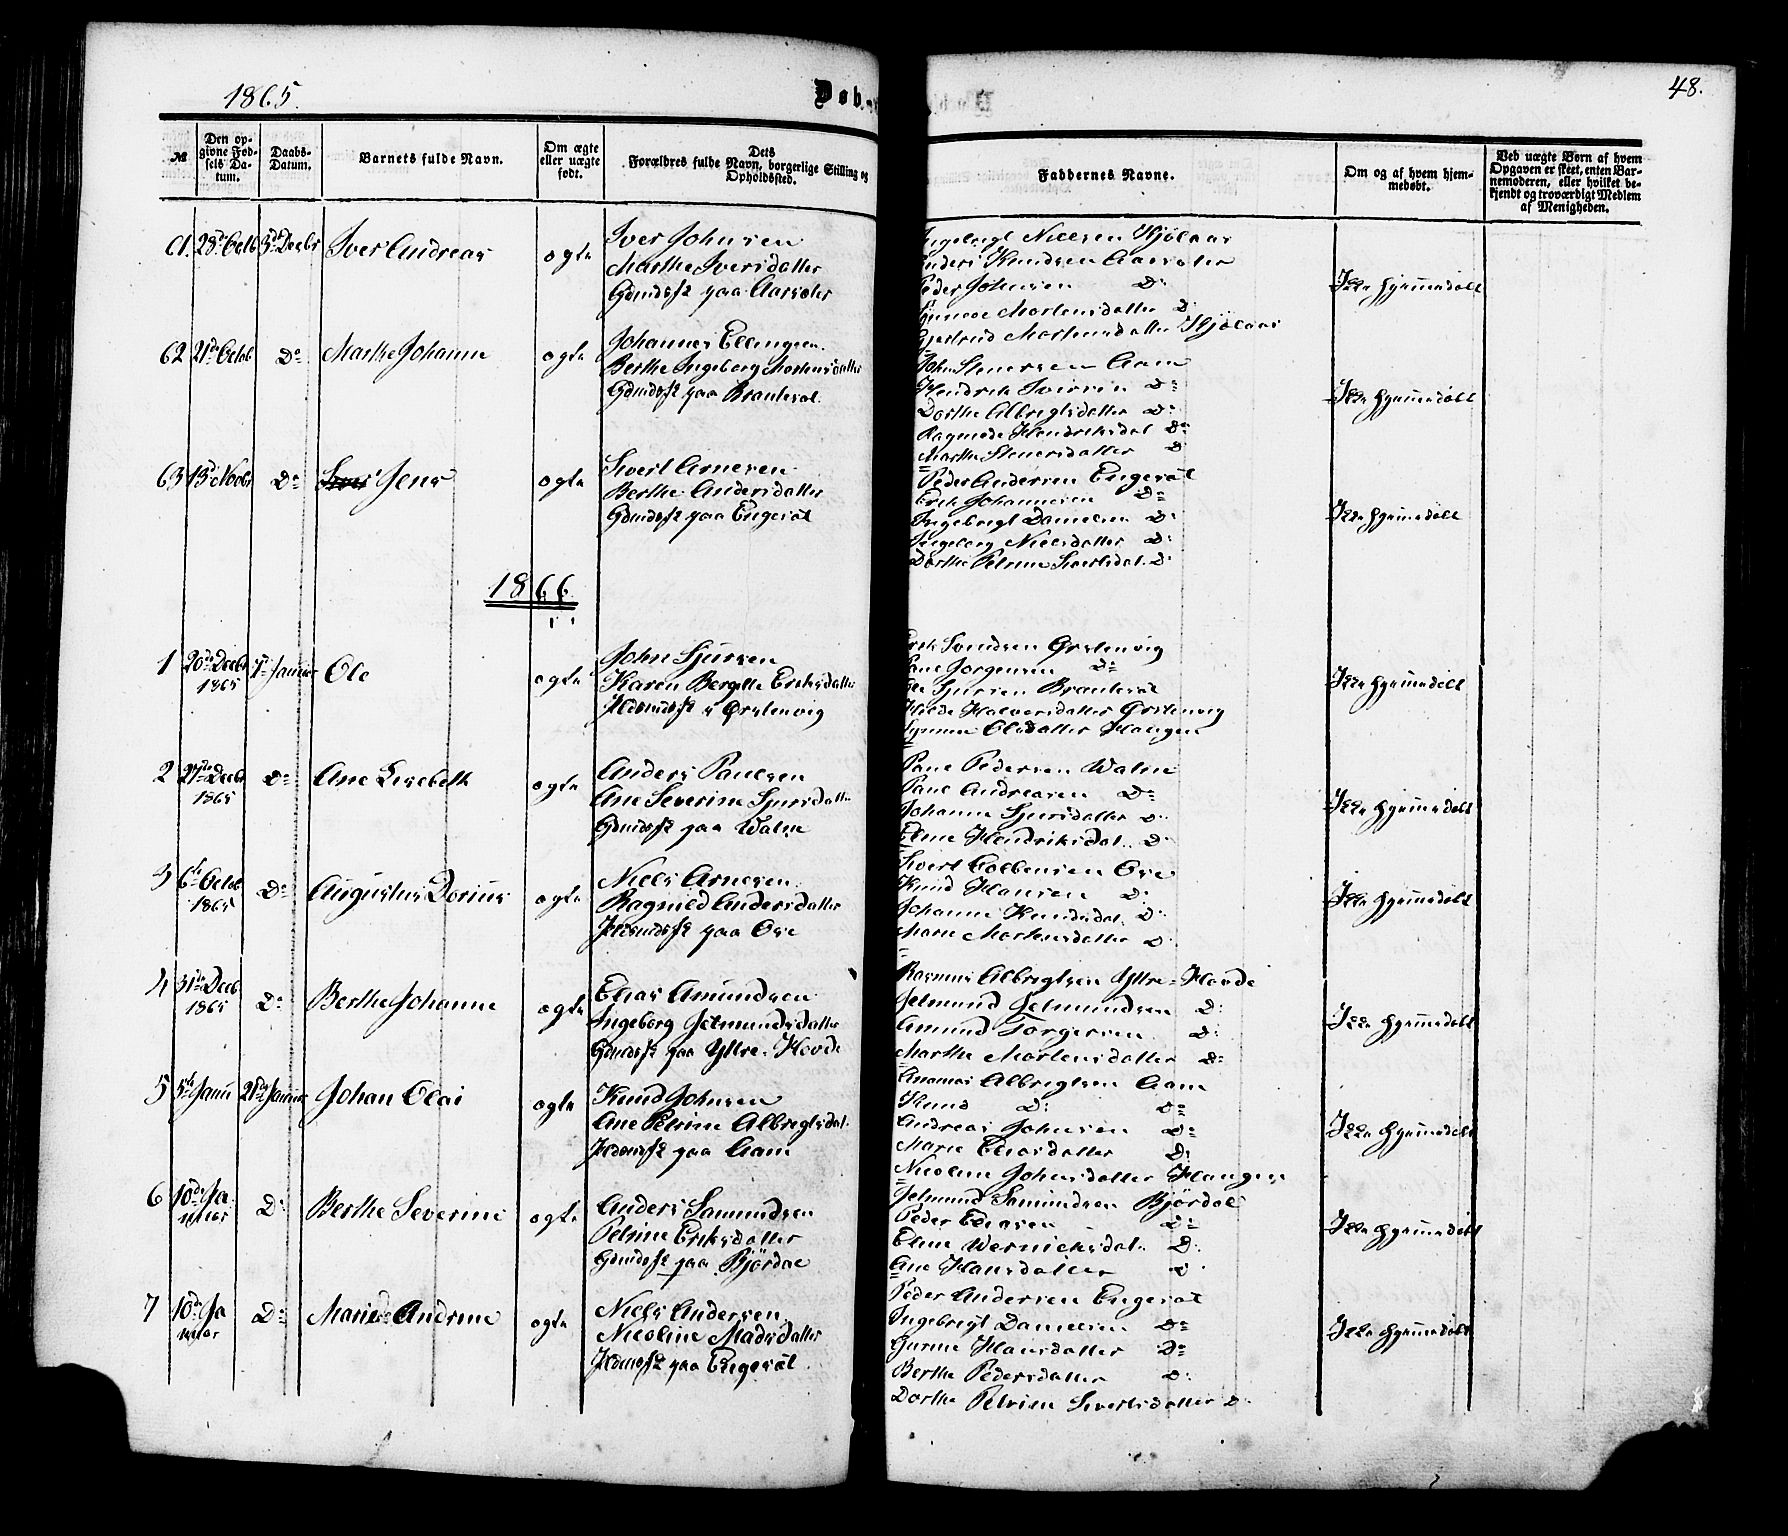 1865.
Døb
48.
№
Den opgivne Fødsels Datum.
Daabs-Datum.
Barnets fulde Navn.
Om ægte eller uægte født.
Dets Forældres fulde Navn, borgerlige Stilling og Opholdssted.
Faddernes Navne.
Om og af hvem hjemmedøbt.
Ved uægte Børn af hvem Opgaven er skeet, enten Barnemoderen, eller hvilket bekjendt og troværdigt Medlem af Menigheden.
61. 28de Octb 3de Decbr Iver Andreas ægte
Iver Johnsen
Marthe Iversdatter
Gdmdsfk paa Aarsæter
Ingebrigt Nielsen Kjølaas
Anders Knudsen Aarsæter
Peder Johnsen Do
Gunnve Mortensdatter Do
Gjertrud Mortensdatter Kjølaas
Ikke hjemmedøbt
62 21de Octob Do Marthe Johanne ægte
Johannes Ellingsen
Berthe Ingeborg Mortensdatter
Gdmdsfk paa Brautesæt
John Steners­en Aam
Hendrik Do
Dorthe Albregtsdatter Do
Ragnode Hendriksdat Do
Marthe Stenersdatter Do
Ikke hjemmedøbt
63 13de Novbr Do Jens ægte
Sivert Arnesen
Berthe Andersdatter
Gdmdsfk paa Engesæt
Peder Andersen Engesæt
Erik Johannesen Do
Ingebrigt Danielsen Do
Ingeborg Nielsdatter Do
Dorthe Petrine Sivertsdat. Do
Ikke hjemmedøbt
1866
1 20de Decbr 1865 1ste Januar Ole ægte
John Sjursen
Karen Bergitte Eriksdatter
Hdmdsfk i Ørstenvig
Erik Svendsen Ørstenvig
Paul Jørgensen Do
Ole Sjursen Brautesæt
Hilde Halvorsdatter Ørstenvig
Olsdatter Haugen
Ikke hjemmedøbt
2 27de Decbr 1865 Do Ane Lisebeth ægte
Anders Paulsen
Ane Severine Sjursdatter
Gdmdsfk paa Watne
Paul Pedersen Watne
Paul Andreasen Do
Johanne Sjursdatter Do
Eline Hendriksdat. Do
Ikke hjemmedøbt
3 6te Octob 1865 Do Augustus Dorius ægte
Niels Arnesen
Ragnild Andersdatter
Hdmdsfk paa Ose
Sivert Colbensen Ose
Knud Hansen Do
Johanne Knudsdat. Do
Marie Mortensdatter Do
Ikke hjemmedøbt
4 31te Decb 1865 Do Berthe Johanne ægte
Elias Amundsen
Ingeborg Jetmundsdatter
Gdmdsfk paa Yttre-Hovde
Rasmus Albregtsen Yttre-Hovde
Jetmund Jetmundsen Do
Amund Torgersen Do
Marthe Mortensdatter Do
Ikke hjemmedøbt
5 5te Janu 21de Januar Johan Olai ægte
Knud Johnsen
Ane Petrine Albregtsdat.
Hdmdsfk paa Aam
Albregtsen Aam
Knud Do Do
Andreas Johnsen Do
Marie Eliasdatter Do
Nicoline Johnsdatter Haugen
Ikke hjemmedøbt
6 10de Januar Do Berthe Severine ægte
Anders Samundsen
Petrine Eriksdatter
Gdmdsfk paa Bjørdal
Jetmund Samundsen Bjørdal
Peder Eliasen Do
Eline Wernicksdat. Do
Ane Hansdatter Do
Ikke hjemmedøbt
7 10de Januar Do Marie Andrine ægte
Niels Andersen
Nicoline Madsdatter
Hdmdsfk paa Engesæt
Peder Andersen Engesæt
Ingebrigt Danielsen Do
Gurine Hansdatter Do
Berthe Pedersdatter Do
Dorthe Petrine Sivertsdatter Do
Ikke hjemmedøbt